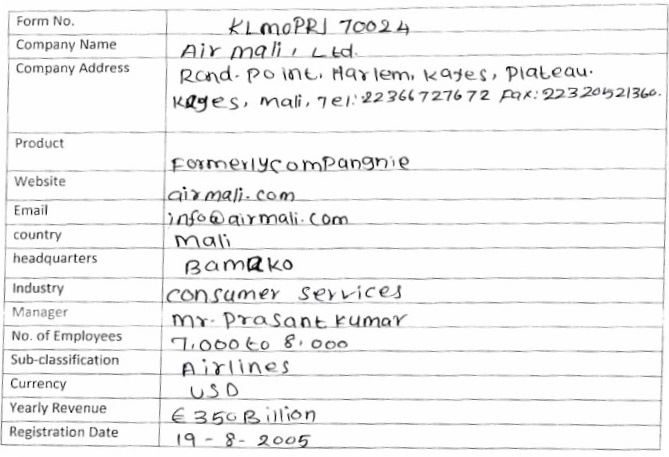 Form No. KLmoPRJ 70024
Company Name Air mali, Ltd.
Company Address Rond. Point. Harlem, kayes, plateau.
kayes, mali, Tel: 22366727672 Fax: 22320521360.
Product Formerly compangnie
Website airmali.com
Email info@airmali.com
country mali
headquarters Bamako
Industry consumer services
Manager mr. prasant kumar
No. of Employees 7,000 to 8,000
Sub-classification Airlines
Currency USD
Yearly Revenue € 350 Billion
Registration Date 19 - 8 - 2005